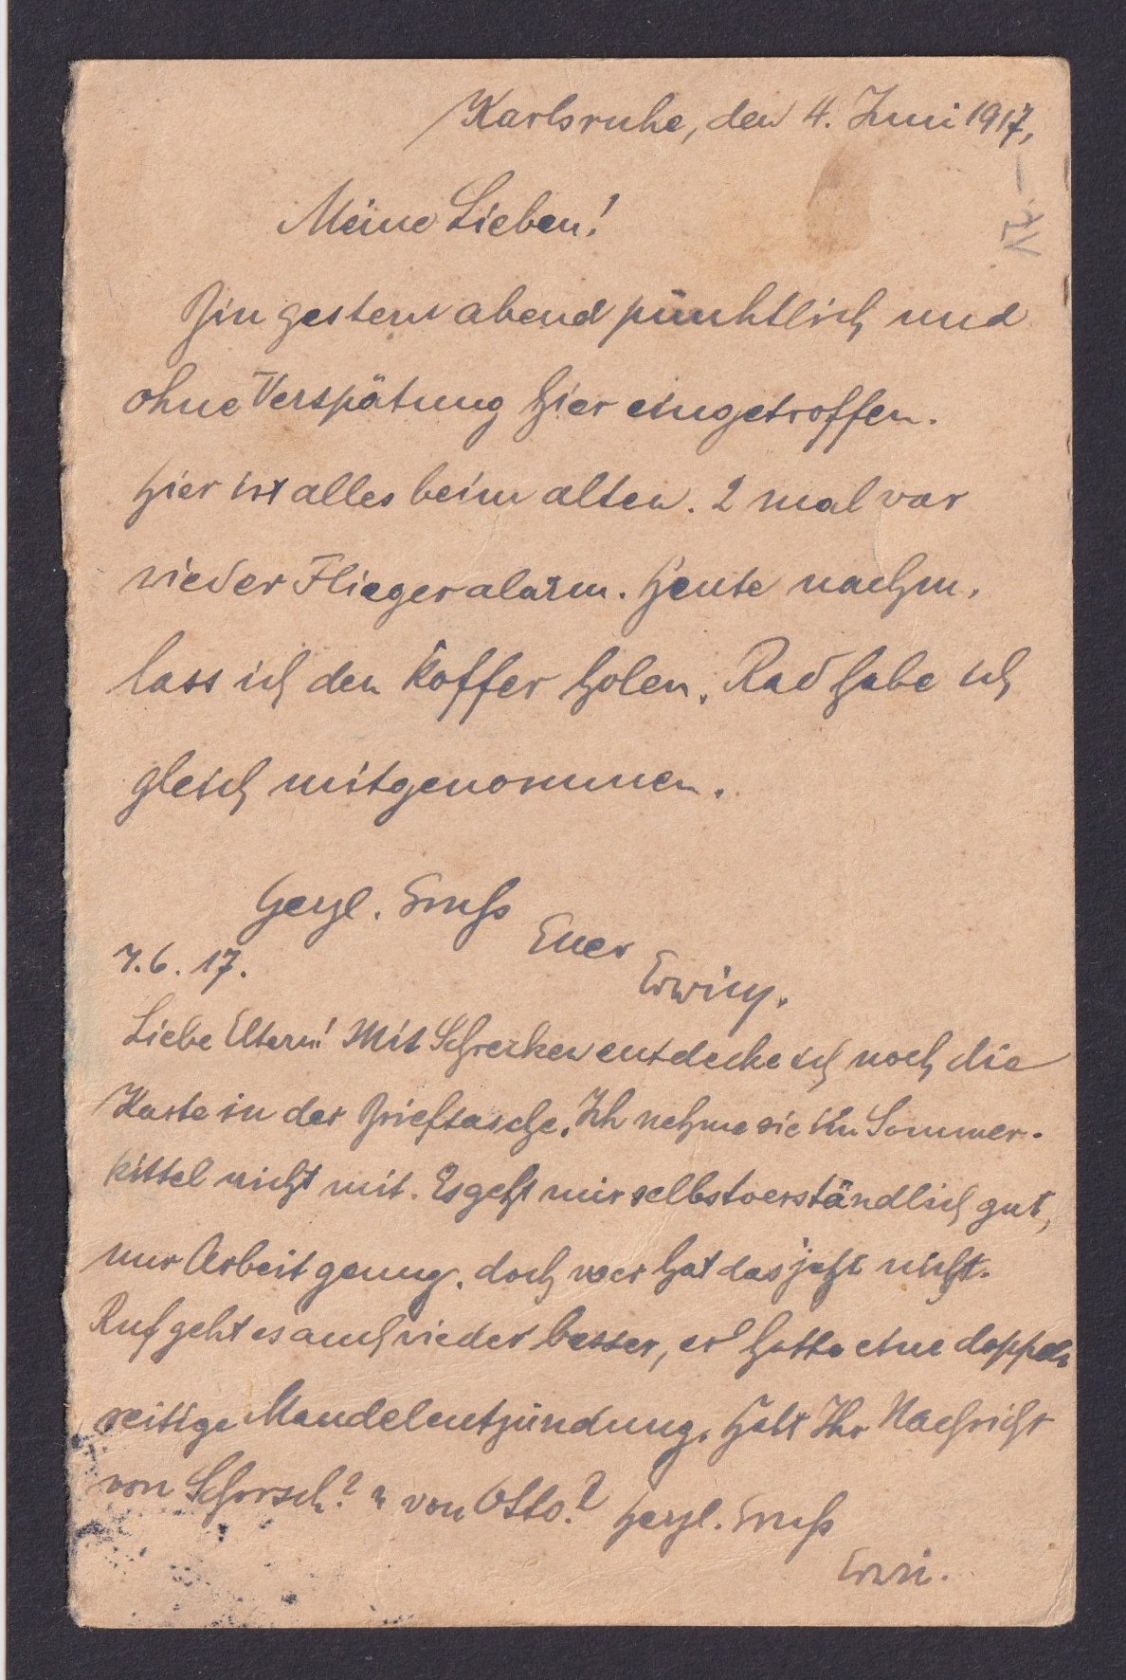 Karlsruhe, den 4. Juni 1917,
Meine Lieben!
Bin gestern abend pünktlich und
ohne Verspätung hier eingetroffen.
Hier ist alles beim alten. 2 mal war
wieder Fliegeralarm. Heute nachm.
lass ich den Koffer holen. Rad habe ich
gleich mitgenommen.
Herzl. Gruß
Euer
Erwin.
7.6.17.
Liebe Eltern! Mit Schrecken entdecke ich noch die
Karte in der Brieftasche. Ich nehme sie im Sommer-
kittel nicht mit. Es geht mir selbstverständlich gut,
nur Arbeit genug, doch wer hat das jetzt nicht.
geht es auch wieder besser, er hatte eine doppel-
seitige Mandelentzündung. Habt Ihr Nachricht
von Schorsch? u von Otto? Herzl. Gruß
Erwin.